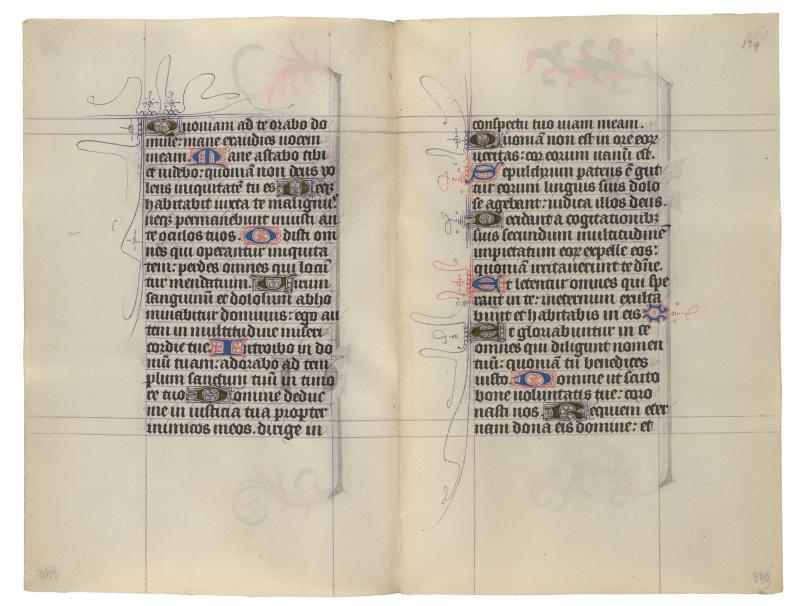 Quoniam ad te orabo do
mine: mane exaudies uocem
meam. Mane astabo tibi
et uidebo: quoniam non deus uo
lens iniquitatē tu es Neqȝ
habitabit iuxta te malignꝰ:
neqȝ permanebunt iniusti an
te oculos tuos. Odisti om
nes qui operantur iniquita
tem: perdes omnes qui locū
tur mendatium. Uirum
sanguinū et dolosum abho
minabitur dominus: ego au
tem in multitudine miseri
cordie tue. Introibo in do
mū tuam: adorabo ad tem
plum sanctum tuū in timo
re tuo Domine deduc
me in iusticia tua propter
inimicos meos. dirige in
174
conspectu tuo uiam meam.
Quoniā non est in ore eoꝝ
ueritas: cor eorum uanū est.
Sepulchrum patens ē gut
tur eorum linguis suis dolo
se agebant: iudica illos deus.
Decidant a cogitationibȝ
suis secundum multitudinē
impietatum eoꝝ expelle eos:
quoniam irritauerunt te dn̄e.
Et letentur omnes qui spe
rant in te: ineternum exulta
bunt et habitabis in eis
Et gloriabuntur in te
omnes qui diligunt nomen
tuū: quoniā tu benedices
iusto. Domine ut scuto
bone uoluntatis tue: coro
nasti nos. Requiem eter
nam dona eis domine: et
340